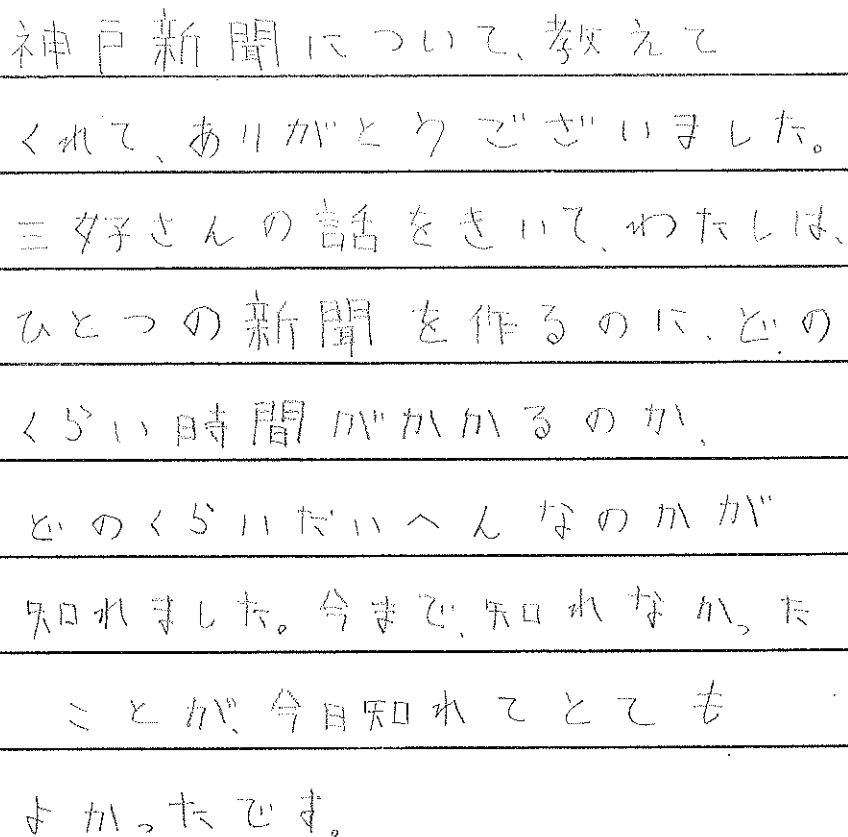 神戸新聞について、教えて
くれて、ありがとうございました。
三好さんの話をきいて、わたしは、
ひとつの新聞を作るのに、どの
くらい時間がかかるのか、
どのくらいだいへんなのかが
知れました。今まで、知れなかった
ことが、今日知れてとても
よかったです。